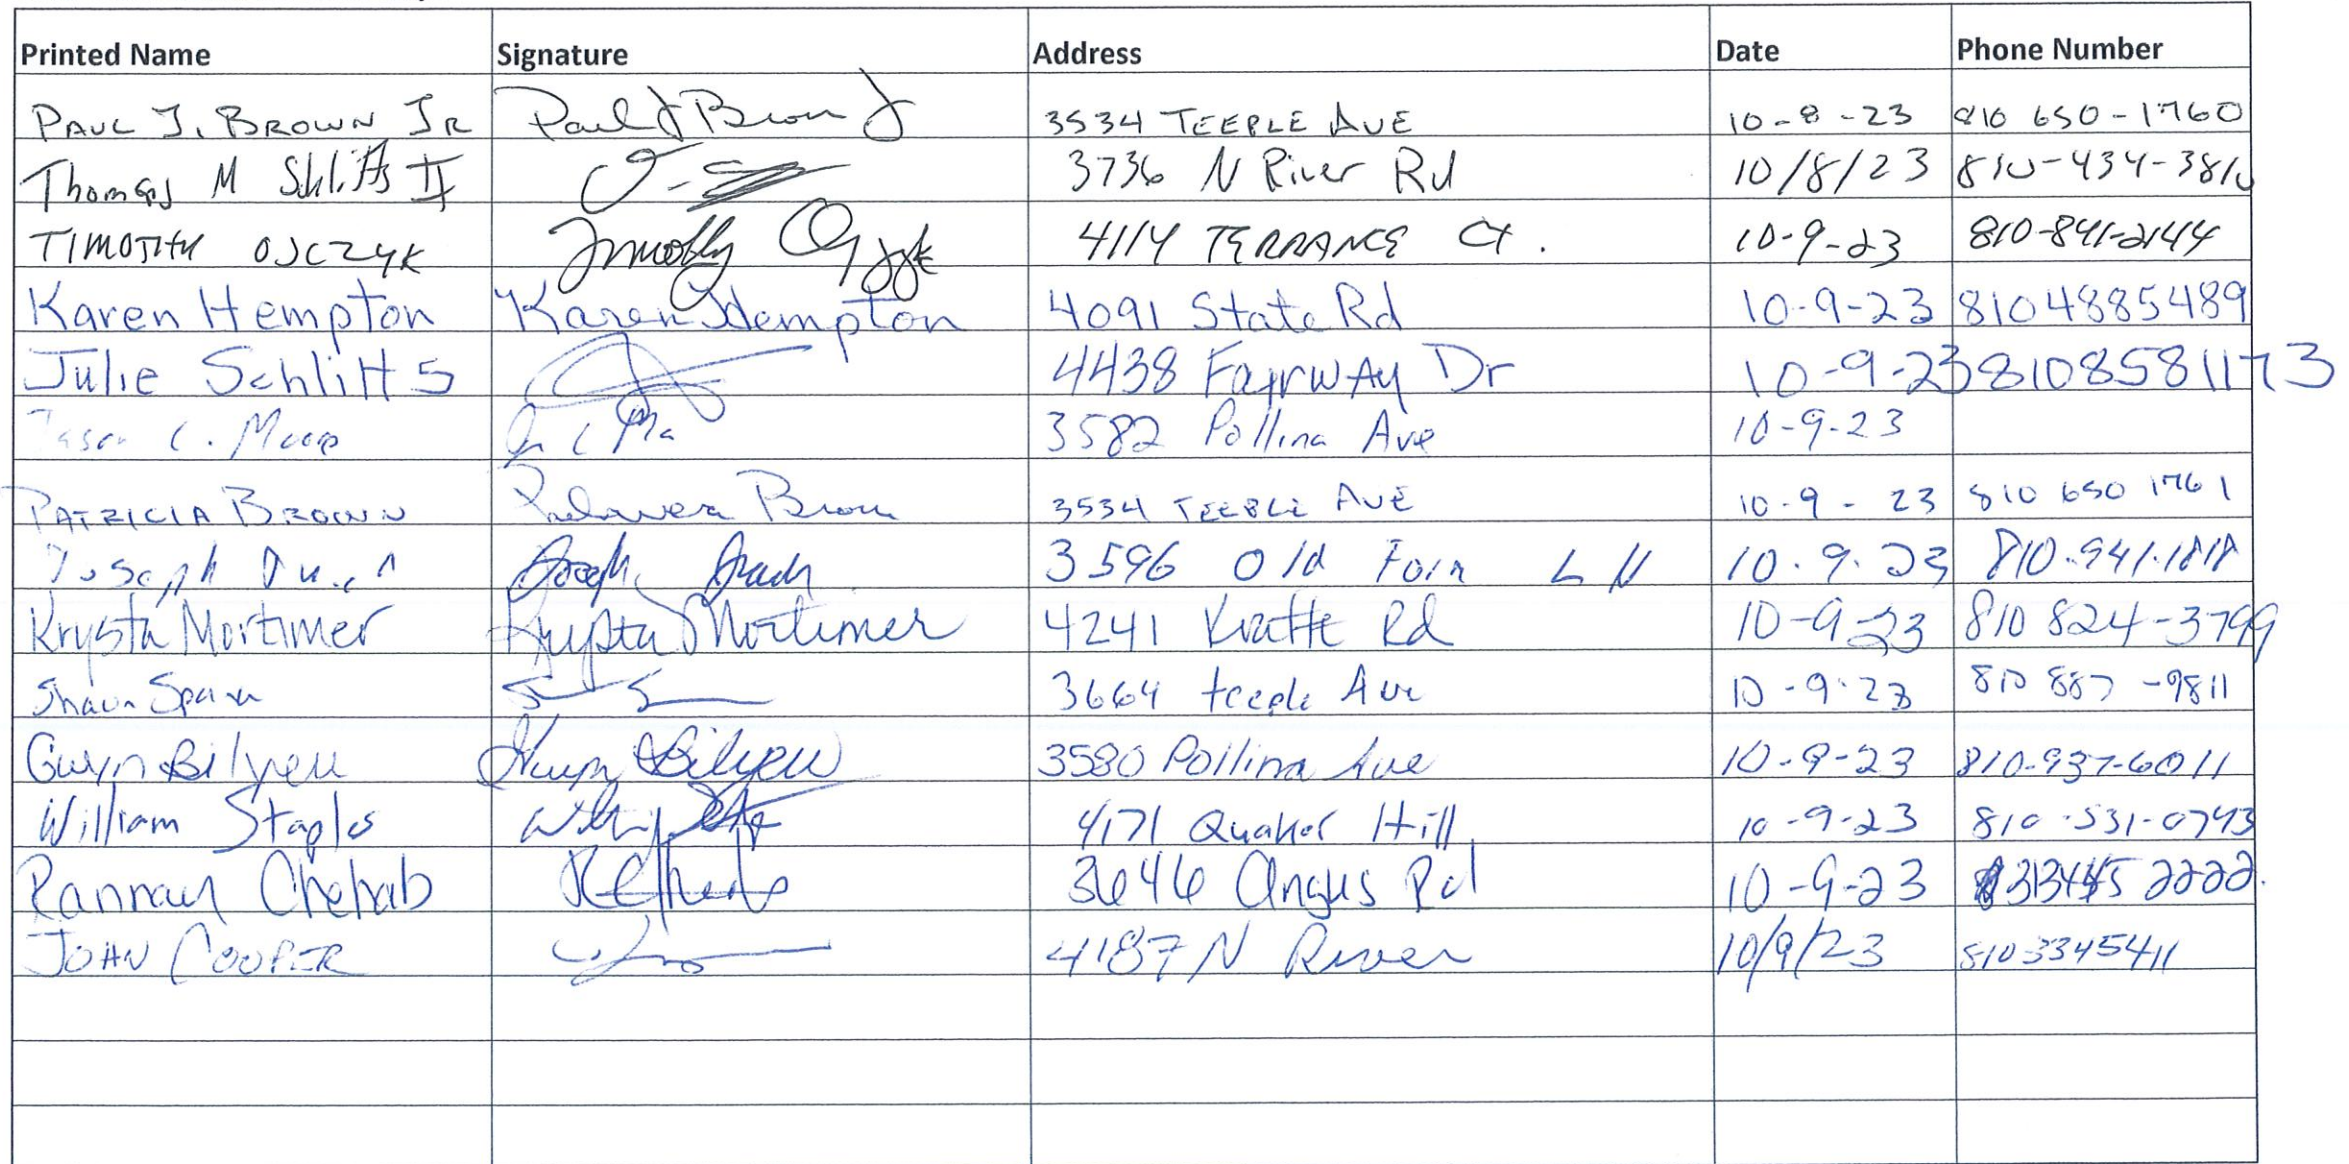 Printed Name Signature Address Date Phone Number
PAUL J. BROWN JR Paul J Brown J 3534 TEEPLE AVE 10-8-23 810 650-1760
Thomas M Schlitts II 3736 N River Rd 10/8/23 810-434-3810
TIMOTHY OJCZYK Timothy Ojczyk 4114 TERRANCE Ct. 10-9-23 810-841-2144
Karen Hempton Karen Hempton 4091 State Rd 10-9-23 8104885489
Julie Schlitts 4438 Fairway Dr 10-9-23 8108581173
Jason C. Moore 3582 Pollina Ave 10-9-23
PATRICIA BROWN Patricia Brown 3534 TEEPLE AVE 10-9-23 810 650 1761
Joseph Joseph 3596 Old Farm LN 10.9.23 810.941.1818
Krysta Mortimer Krysta Mortimer 4241 Kratte Rd 10-9-23 810 824-3799
Shaun Spain 3664 teeple Ave 10-9-23 810 887-9811
Gwyn Bilyeu Gwyn Bilyeu 3580 Pollina Ave 10-9-23 810-937-6011
William Staples 4171 Quaker Hill 10-9-23 810-531-0743
Rannay Chehab 3646 Angus Rd 10-9-23 2222
JOHN COOPER 4187 N River 10/9/23 8103345411